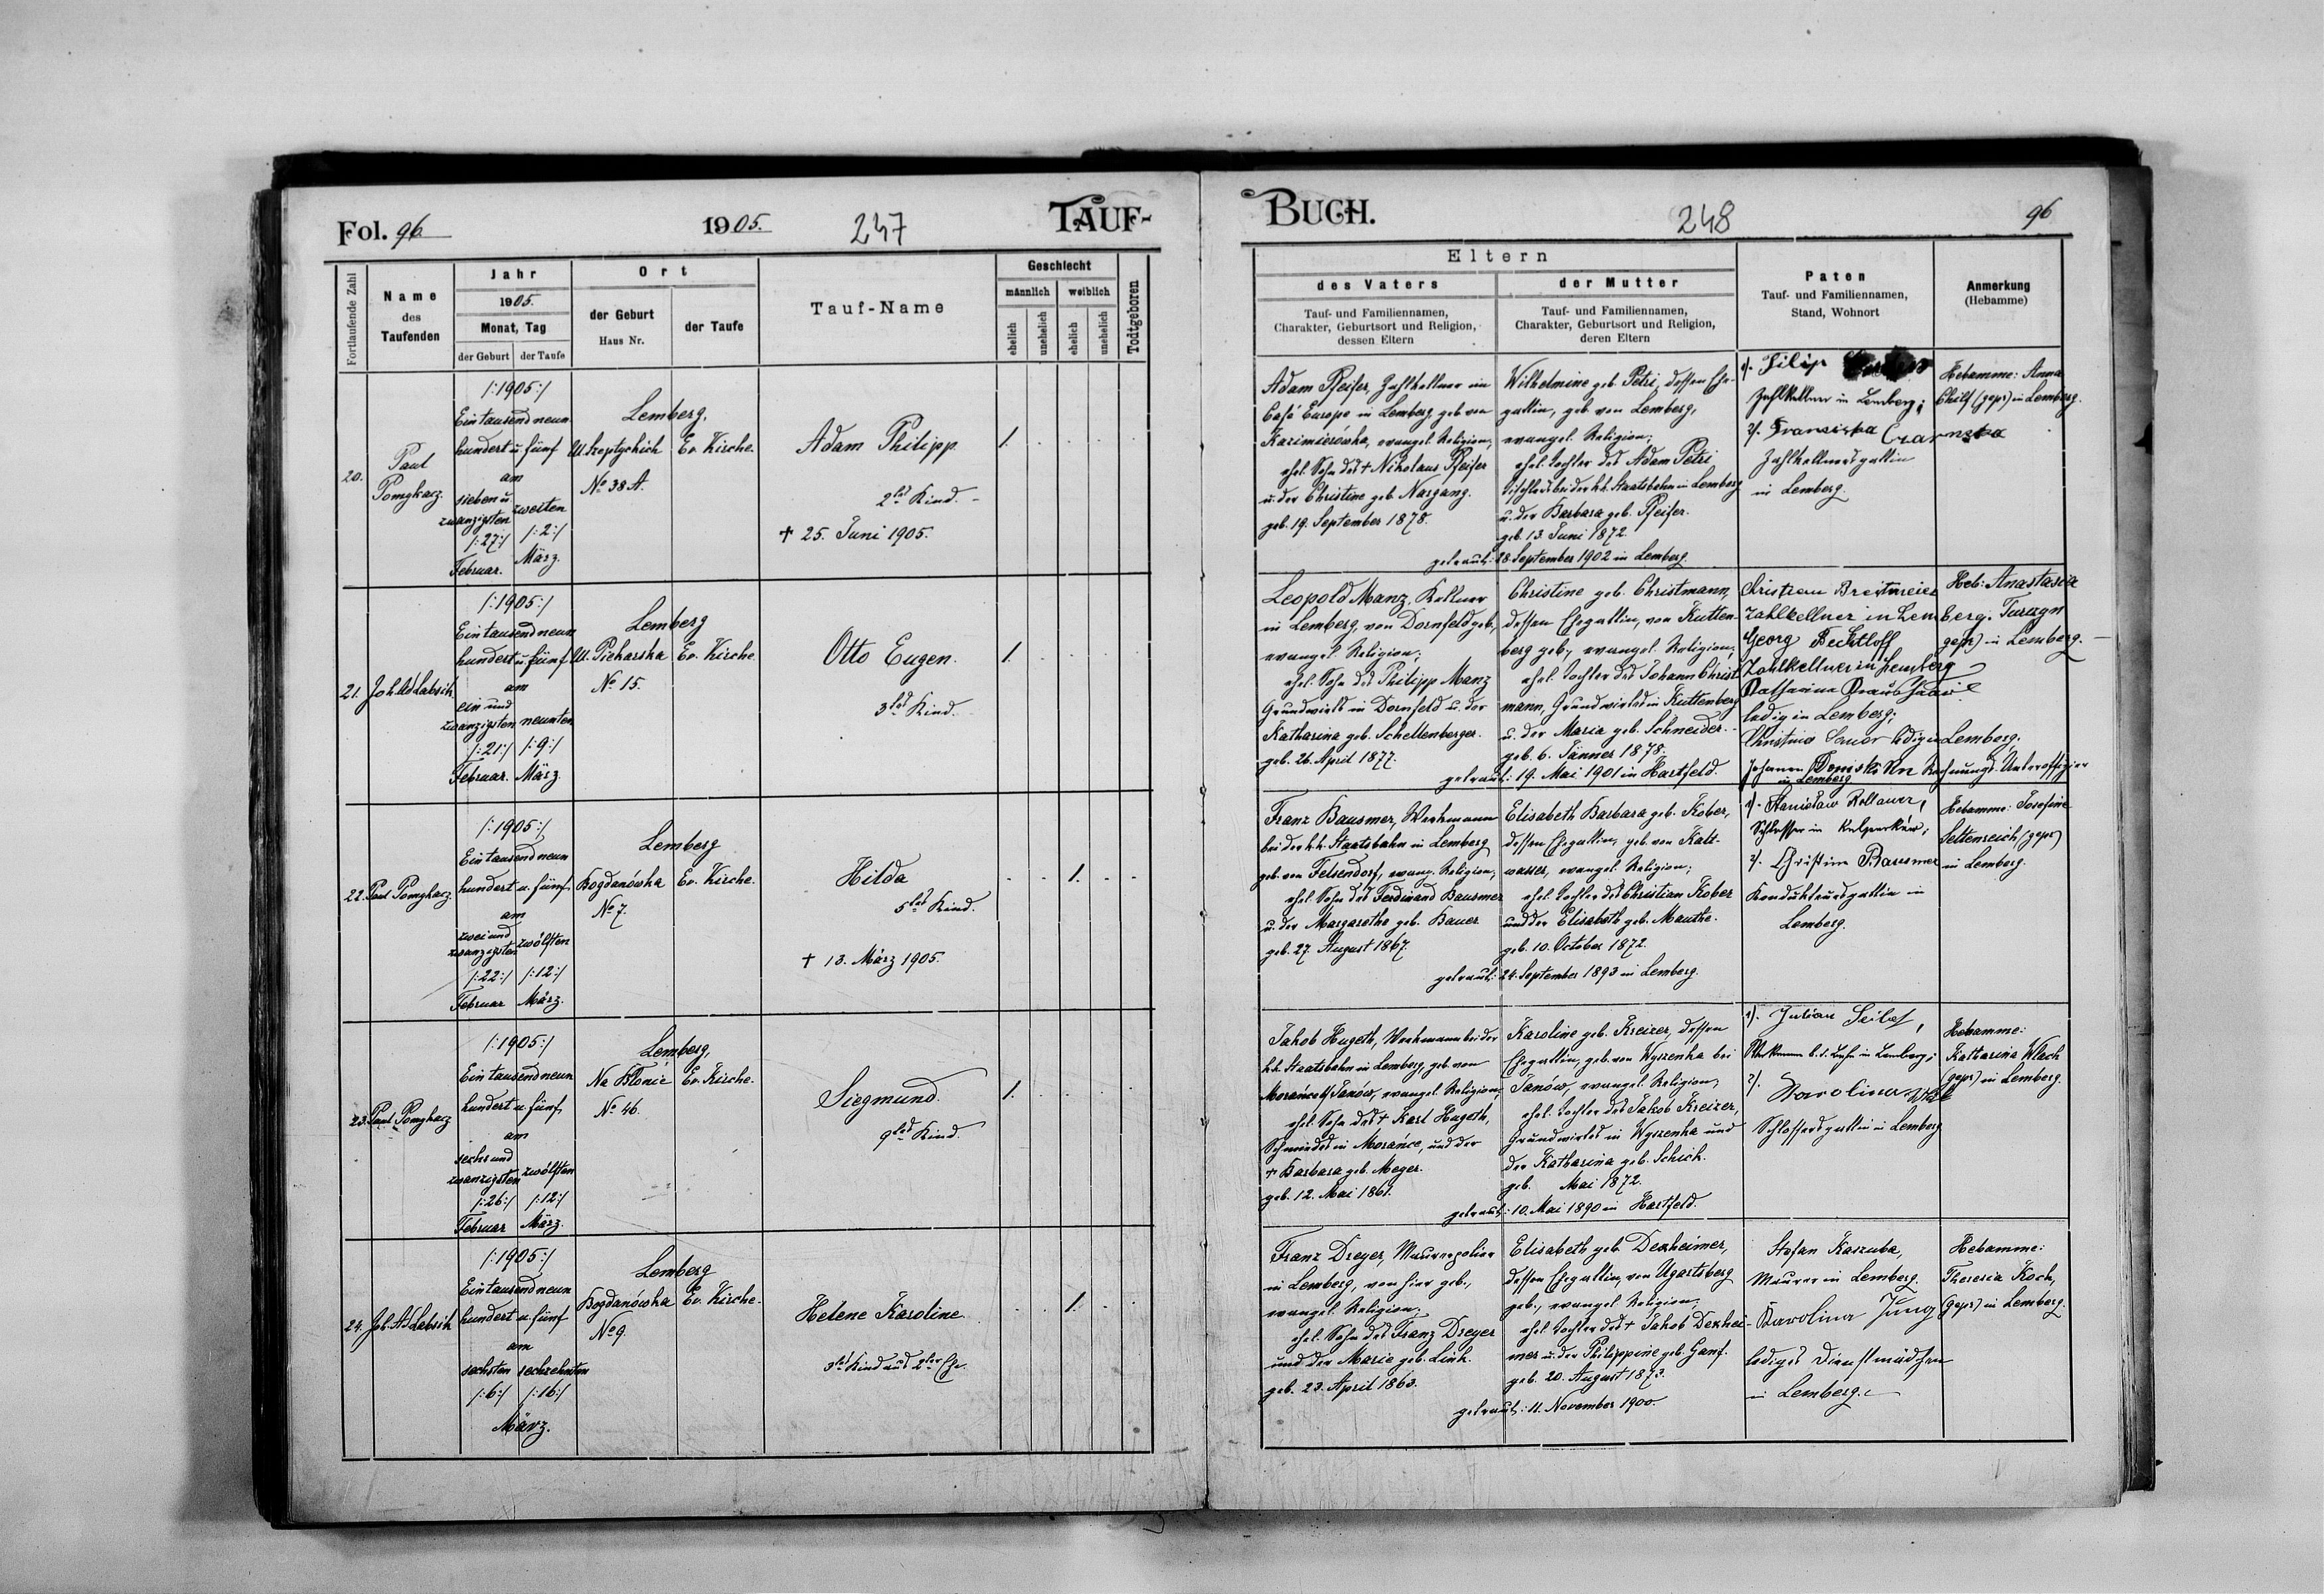 Fol. 96
1905.
247
TAUF-
Fortlaufende Zahl
Name
des
Taufenden
Jahr
1905.
Monat, Tag
der Geburt
der Taufe
Ort
der Geburt
Haus Nr.
der Taufe
Tauf-Name
Geschlecht
männlich
weiblich
ehelich
unehelich
ehelich
unehelich
Todtgeboren
20.
Paul
Pomykacz.
/:1905:/
Ein tausend neun
hundert u. fünf
am
sieben u.
zwanzigsten
zweiten
/:27:/ /:2:/
Februar. März.
Lemberg,
Ul. Szeptychich Ev. Kirche.
No 38 A.
Adam Philipp.
2tes Kind. -
† 25. Juni 1905.
1.
21. Joh. Ad. Labsik
/:1905:/
Ein tausend neun
hundert u. fünf
am
ein und
zwanzigsten neunten
/:21:/ /:9:/
Februar. März.
Lemberg
Ul. Piekarska Ev. Kirche.
No 15.
Otto Eugen.
3tes Kind.
1.
22. Paul Pomykacz.
/:1905:/
Ein tausend neun
hundert u. fünf
am
zwei und
zwanzigsten zwölften
/:22:/ /:12:/
Februar März.
Lemberg
Bogdanówka Ev. Kirche.
No 7.
Hilda
5tes Kind.
† 13. März 1905.
1.
23. Paul Pomykacz
/:1905:/
Ein tausend neun
hundert u. fünf
am
sechs und
zwanzigsten zwölften
/:26:/ /:12:/
Februar März.
Lemberg,
Na Błonie Ev. Kirche.
No 46.
Siegmund.
9tes Kind.
1.
24. Joh. Ad. Labsik
/:1905:/
Ein tausend neun
hundert u. fünf
am
sechsten sechzehnten
/:6:/ /:16:/
März.
Lemberg
Bogdanówka Ev. Kirche.
No 9.
Helene Karoline
3tes Kind aus 2ter Ehe.
1.
BUCH.
248
96
Eltern
des Vaters
Tauf- und Familiennamen,
Charakter, Geburtsort und Religion,
dessen Eltern
der Mutter
Tauf- und Familiennamen,
Charakter, Geburtsort und Religion,
deren Eltern
Paten
Tauf- und Familiennamen,
Stand, Wohnort
Anmerkung
(Hebamme)
Adam Pfeifer, Zahlkellner im
Café Europe in Lemberg, geb. von
Kazimierówka, evangel. Religion,
ehel. Sohn des † Nikolaus Pfeifer
u. der Christine geb. Nargang.
geb. 19. September 1878.
Wilhelmine geb. Petri, dessen Ehe-
gattin, geb. von Lemberg,
evangel. Religion;
ehel. Tochter des Adam Petri
Tischlers bei der k.k. Staatsbahn in Lemberg
u. der Barbara geb. Pfeifer.
geb. 13. Juni 1872.
getraut: 28. September 1902 in Lemberg.
1). Filip
Zahlkellner in Lemberg;
2). Franciska Czarnska
Zahlkellnersgattin
in Lemberg.
Hebamme: Anna
(gepr) in Lemberg.
Leopold Manz, Kellner
in Lemberg, von Dornfeld geb.,
evangel. Religion;
ehel. Sohn des Philipp Manz
Grundwirts in Dornfeld u. der
Katharina geb. Schellenberger.
geb. 26. April 1877.
Christine geb. Christmann,
dessen Ehegattin, von Kutten-
berg geb., evangel. Religion;
ehel. Tochter des Johann Christ-
mann, Grundwirtes in Kuttenberg
u. der Maria geb. Schneider.
geb. 6. Jänner 1878.
getraut: 19. Mai 1901 in Hartfeld.
Christian Breitmeier
Zahlkellner in Lemberg.
Georg Rechtloff
Zahlkellner in Lemberg
Katharina
ledig in Lemberg;
Christina Sauer ledig in Lemberg,
Johann Rechnungs-Unteroffizier
in Lemberg
Heb: Anastasia
gepr) in Lemberg.
Franz Bausmer, Werkmann
bei der k.k. Staatsbahn in Lemberg
geb. von Felsendorf, evang. Religion;
ehel. Sohn des Ferdinand Bausmer
u. der Margarethe geb. Bauer
geb. 27. August 1867.
Elisabeth Barbara geb. Kober,
dessen Ehegattin, geb. von Kalt-
wasser, evangel. Religion;
ehel. Tochter des Christian Kober
und der Elisabeth geb. Mauthe.
geb. 10. October 1872.
getraut: 24. September 1893 in Lemberg.
1). Stanisław
Schlosser in Kulparków;
2). Christine Bausmer
Kondukteursgattin in
Lemberg.
Hebamme: Josefine
Seltenreich (gepr)
in Lemberg.
Jakob Hugeth, Werkmann bei der
k.k. Staatsbahn in Lemberg, geb. von
Morańce b/Janów, evangel. Religion;
ehel. Sohn des † Karl Hugeth,
Schmiedes in Morańce, und der
† Barbara geb. Meger.
geb. 12. Mai 1861.
Karoline geb. Kreizer, dessen
Ehegattin, geb. von Wyszenka bei
Janów, evangel. Religion;
ehel. Tochter des Jakob Kreizer,
Grundwirtes in Wyszenka und
der Katharina geb. Schick.
geb. Mai 1872.
getraut: 10. Mai 1890 in Hartfeld.
1). Julian
Werkmann b. d. Bahn in Lemberg;
2).
Karolina
Schlossersgattin in Lemberg
Hebamme:
Katharina Wlach
(gepr) in Lemberg.
Franz Dreyer, Maurerpolier
in Lemberg, von hier geb.,
evangel. Religion;
ehel. Sohn des Franz Dreyer
und der Marie geb. Link.
geb. 23. April 1863.
Elisabeth geb. Dexheimer,
dessen Ehegattin, von Ugartsberg
geb., evangel. Religion,
ehel. Tochter des † Jakob Dexhei-
mer u. der Philippine geb. Ganf.
geb. 20. August 1873.
getraut: 11. November 1900.
Stefan Kaszuba,
Maurer in Lemberg.
Karolina Jung
lediges Dienstmädchen
in Lemberg.
Hebamme:
Theresia Koch,
(gepr) in Lemberg.